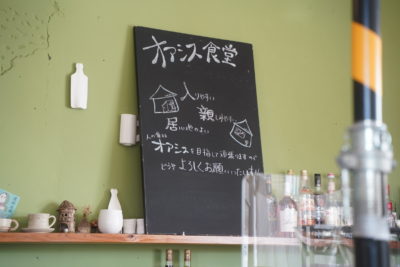 オアシス食堂
入りやすい
親しみやすい
居心地のよい
オアシスを目指して頑張りますので
どうぞよろしくお願いいたします